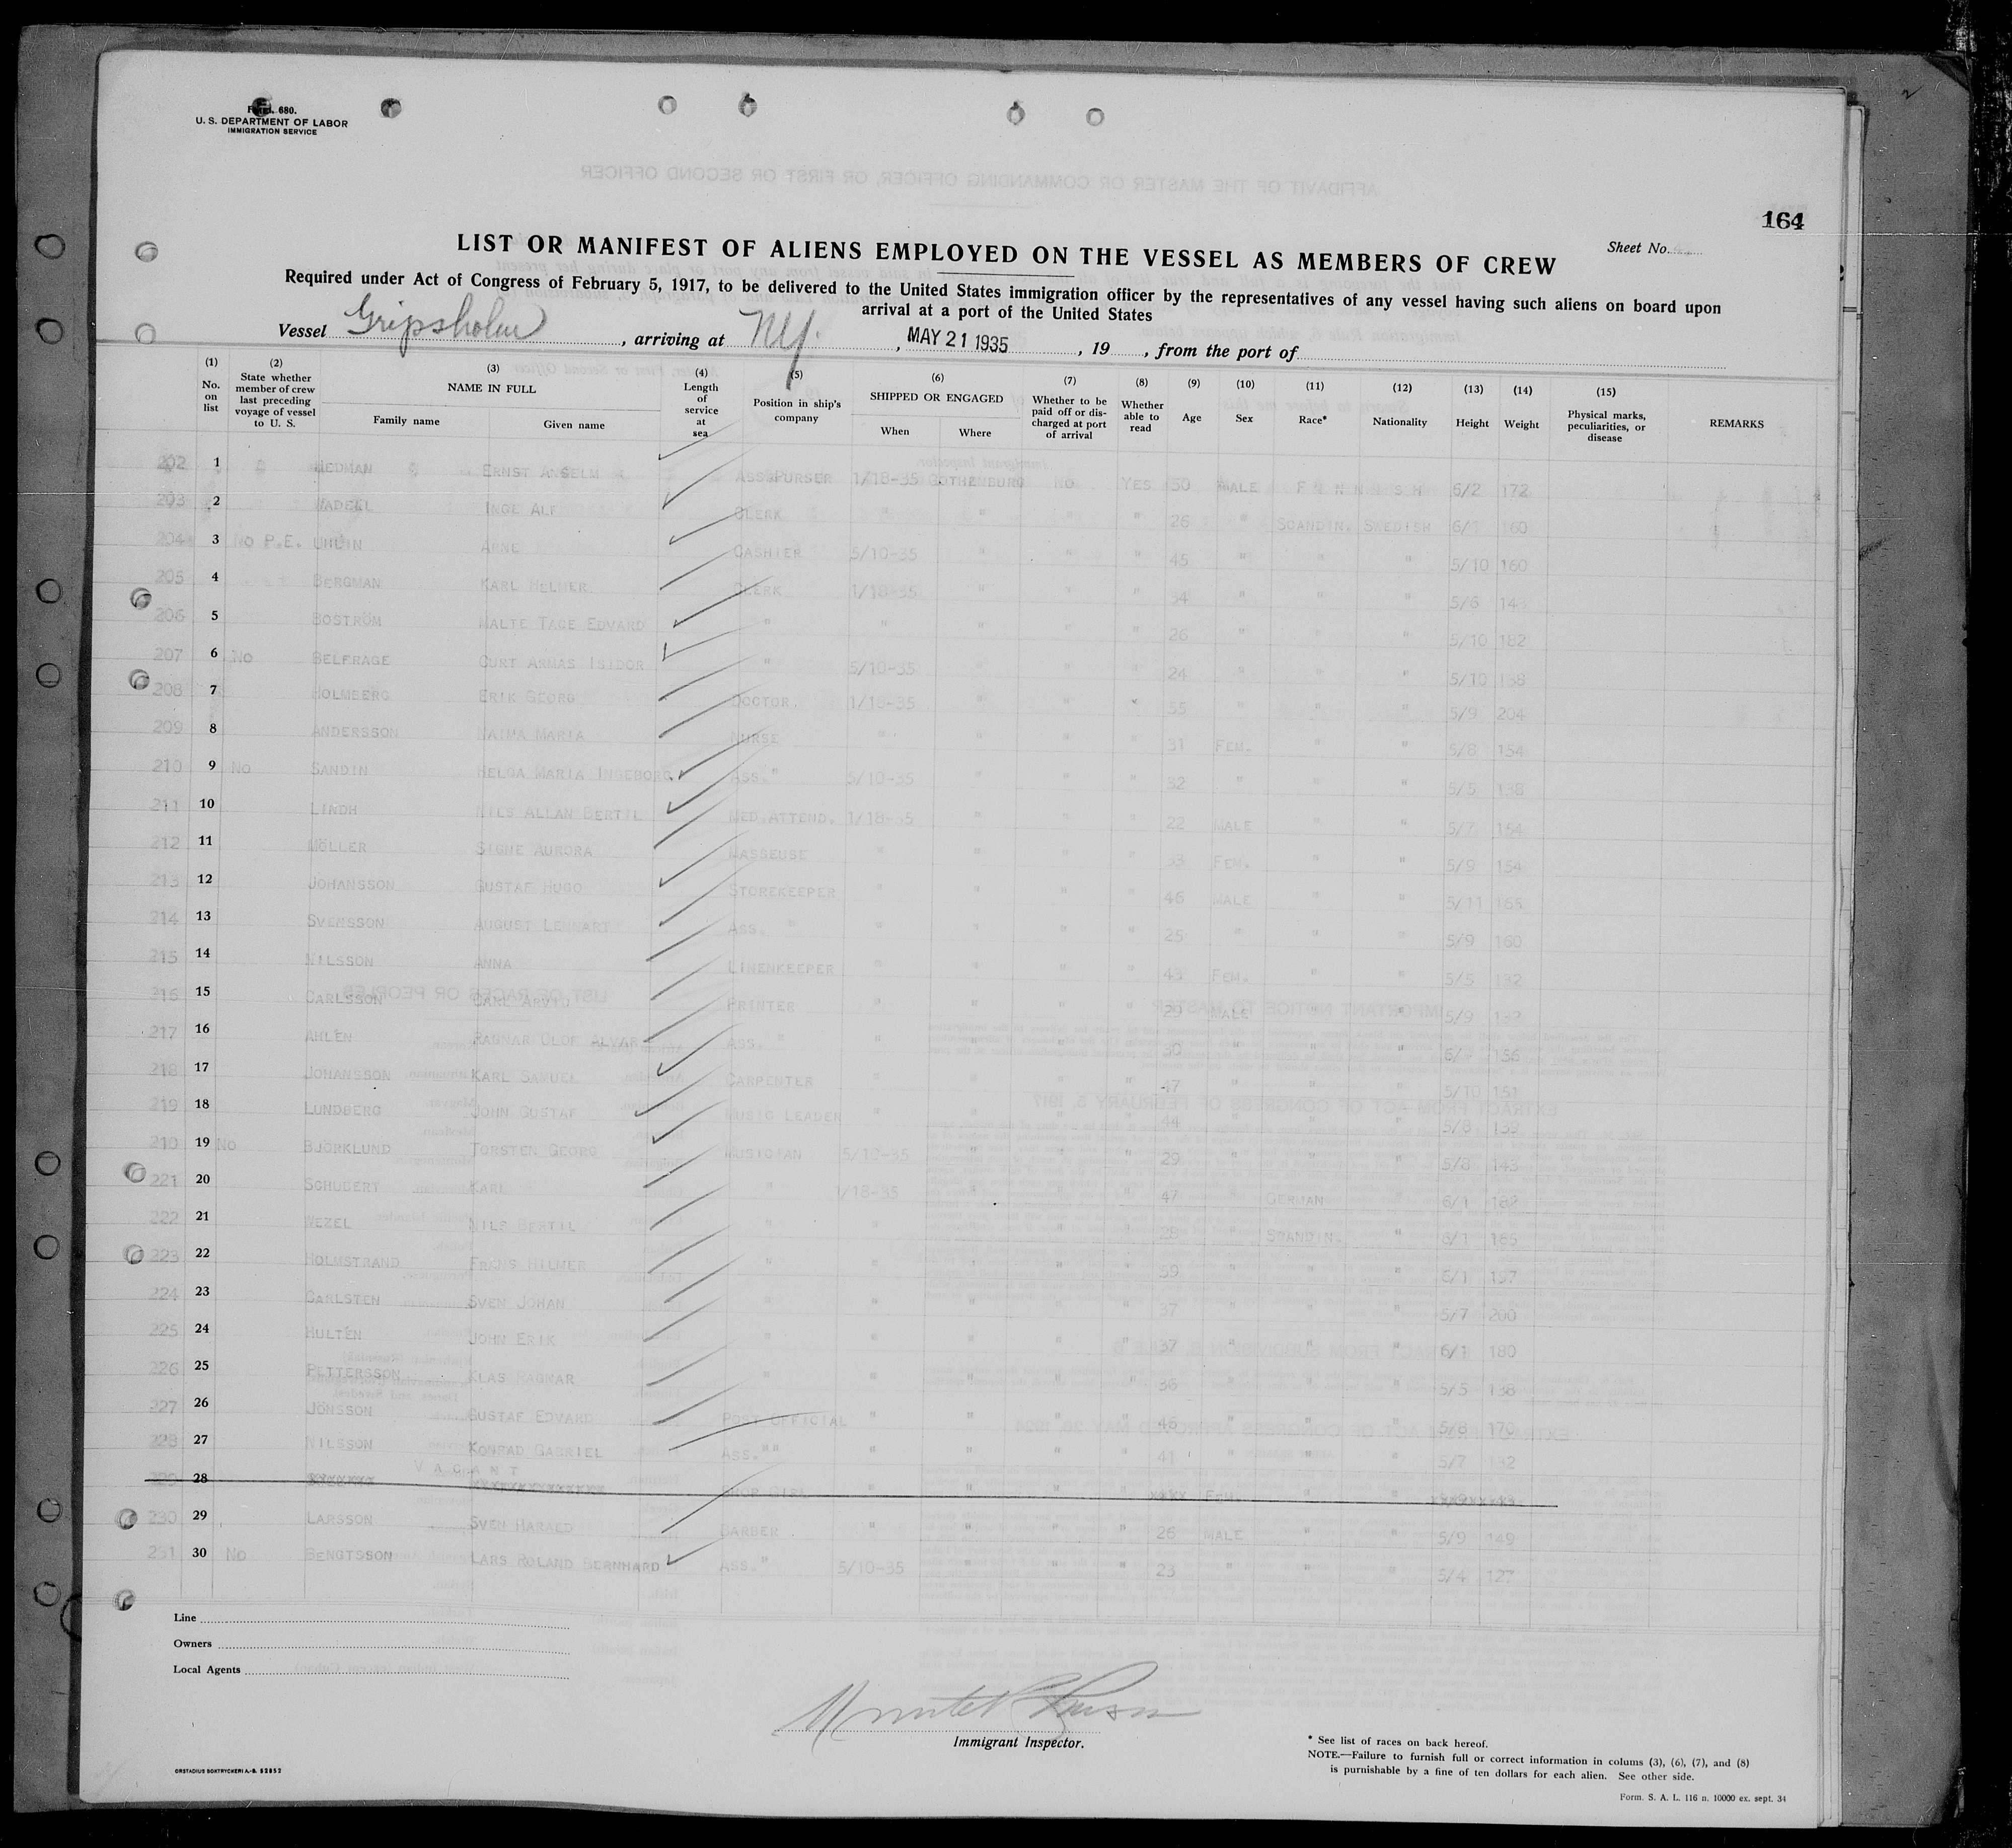 Form 680.
U. S. DEPARTMENT OF LABOR
IMMIGRATION SERVICE
164
LIST OR MANIFEST OF ALIENS EMPLOYED ON THE VESSEL AS MEMBERS OF CREW
Sheet No.
Required under Act of Congress of February 5, 1917, to be delivered to the United States immigration officer by the representatives of any vessel having such aliens on board upon
arrival at a port of the United States
Vessel Gripsholm, arriving at NY., MAY 21 1935, 19, from the port of
(1) No. on list (2) State whether member of crew last preceding voyage of vessel to U. S. (3) NAME IN FULL Family name Given name (4) Length of service at sea (5) Position in ship's company (6) SHIPPED OR ENGAGED When Where (7) Whether to be paid off or discharged at port of arrival (8) Whether able to read (9) Age (10) Sex (11) Race* (12) Nationality (13) Height (14) Weight (15) Physical marks, peculiarities, or disease REMARKS
202 1 HEDMAN ERNST ANSELM ASS.PURSER 1/18-35 GOTHENBURG NO YES 50 MALE FINNISH 6/2 172
203 2 INGE ALF CLERK " " " " 26 " SCANDIN. SWEDISH 6/1 160
204 3 NO P.E. ARNE CASHIER 5/10-35 " " " 45 " " " 5/10 160
205 4 BERGMAN KARL HELMER CLERK 1/18-35 " " " 34 " " " 5/6
206 5 BOSTRÖM MALTE TAGE EDVARD " " " " " 26 " " " 5/10 182
207 6 NO BELFRAGE CURT ARMAS ISIDOR " 5/10-35 " " " 24 " " " 5/10 158
208 7 HOLMBERG ERIK GEORG DOCTOR. 1/18-35 " " " 55 " " " 5/9 204
209 8 ANDERSSON NAIMA MARIA NURSE " " " " 31 FEM. " " 5/8 154
210 9 NO SANDIN HELGA MARIA INGEBORG ASS." 5/10-35 " " " 32 " " " 5/5 138
211 10 LINDH NILS ALLAN BERTIL MED.ATTEND. 1/18-35 " " " 22 MALE " " 5/7 154
212 11 MÖLLER SIGNE AURORA MASSEUSE " " " " 33 FEM. " " 5/9 154
213 12 JOHANSSON GUSTAF HUGO STOREKEEPER " " " " 46 MALE " " 5/11 165
214 13 SVENSSON AUGUST LENNART ASS. " " " " " 25 " " " 5/9 160
215 14 NILSSON ANNA LINENKEEPER " " " " 43 FEM. " " 5/5 132
216 15 CARLSSON CARL ARVID PRINTER " " " " 29 MALE " " 5/9
217 16 AHLÉN RAGNAR OLOF ALVAR ASS. " " " " " 30 " " " 156
218 17 JOHANSSON KARL SAMUEL CARPENTER " " " " 47 " " " 5/10 151
219 18 LUNDBERG JOHN GUSTAF MUSIC LEADER " " " " 44 " " " 5/8 139
210 19 NO BJÖRKLUND TORSTEN GEORG MUSICIAN 5/10-35 " " " 29 " " " 5/8 143
221 20 SCHUBERT KARL " 1/18-35 " " " 47 " GERMAN " 6/1 182
222 21 WEZEL NILS BERTIL " " " " " 28 " SCANDIN. " 6/1 185
223 22 HOLMSTRAND FRANS HILMER " " " " " 59 " " " 6/1 197
224 23 CARLSTEN SVEN JOHAN " " " " " 37 " " " 5/7 200
225 24 HULTÉN JOHN ERIK " " " " " 37 " " " 6/1 180
226 25 PETTERSSON KLAS RAGNAR " " " " " 36 " " " 5/5 138
227 26 JÖNSSON GUSTAF EDVARD POST OFFICIAL " " " " 46 " " " 5/8 170
228 27 NILSSON KONRAD GABRIEL ASS."" " " " " 41 " " " 5/7 132
229 28 VACANT SHOP GIRL " " " " FEM. " "
230 29 LARSSON SVEN HARALD BARBER " " " " 26 MALE " " 5/9 149
231 30 NO BENGTSSON LARS ROLAND BERNHARD ASS." 5/10-35 " " " 23 " " " 5/4 127
Line
Owners
Local Agents
Immigrant Inspector.
* See list of races on back hereof.
NOTE.—Failure to furnish full or correct information in colums (3), (6), (7), and (8)
is purnishable by a fine of ten dollars for each alien. See other side.
ORSTADIUS BOKTRYCKERI A.-B. 52852
Form. S. A. L. 116 n. 10000 ex. sept. 34